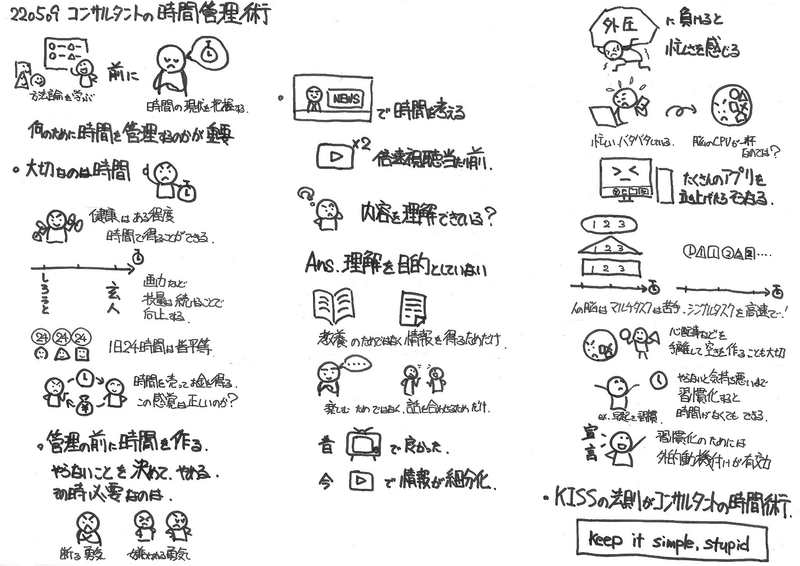 220509 コンサルタントの時間管理術
前に
方法論を学ぶ
時間の現状を把握する.
何のために時間を管理するのかが重要
・大切なのは時間
健康はある程度
時間で得ることができる.
しろうと
玄人
画力など
技量は続けることで
向上する.
24 24 24
1日24時間は皆平等.
時間を売ってお金を得る.
この感覚は正しいのか?
・管理の前に時間を作る.
やらないことを決めて、やめる.
その時必要なのは.
断る勇気
嫌われる勇気
・
NEWS
で時間を考える
×2
倍速視聴当たり前.
内容を理解できている?
Ans. 理解を目的としていない
教養のためではなく情報を得るためだけ.
楽しむためではなく、話を合わせるためだけ.
昔
で良かった.
今
で情報が細分化.
外圧
に負けると
忙しさを感じる
忙しいバタバタしている.
脳のCPUが一杯
なのでは?
たくさんのアプリを
立ち上げたら
1 2 3
1 2 3
1 2 3
人の脳はマルチタスクは苦手. シングルタスクを高速で..!
心配事などを
して空きを作ることも大切
やらないと気持ち悪いまで
習慣化すると
時間がなくてもできる.
宣言
習慣化のためには
外的動機付けが有効
・KISSの法則がコンサルタントの時間術.
keep it simple, stupid